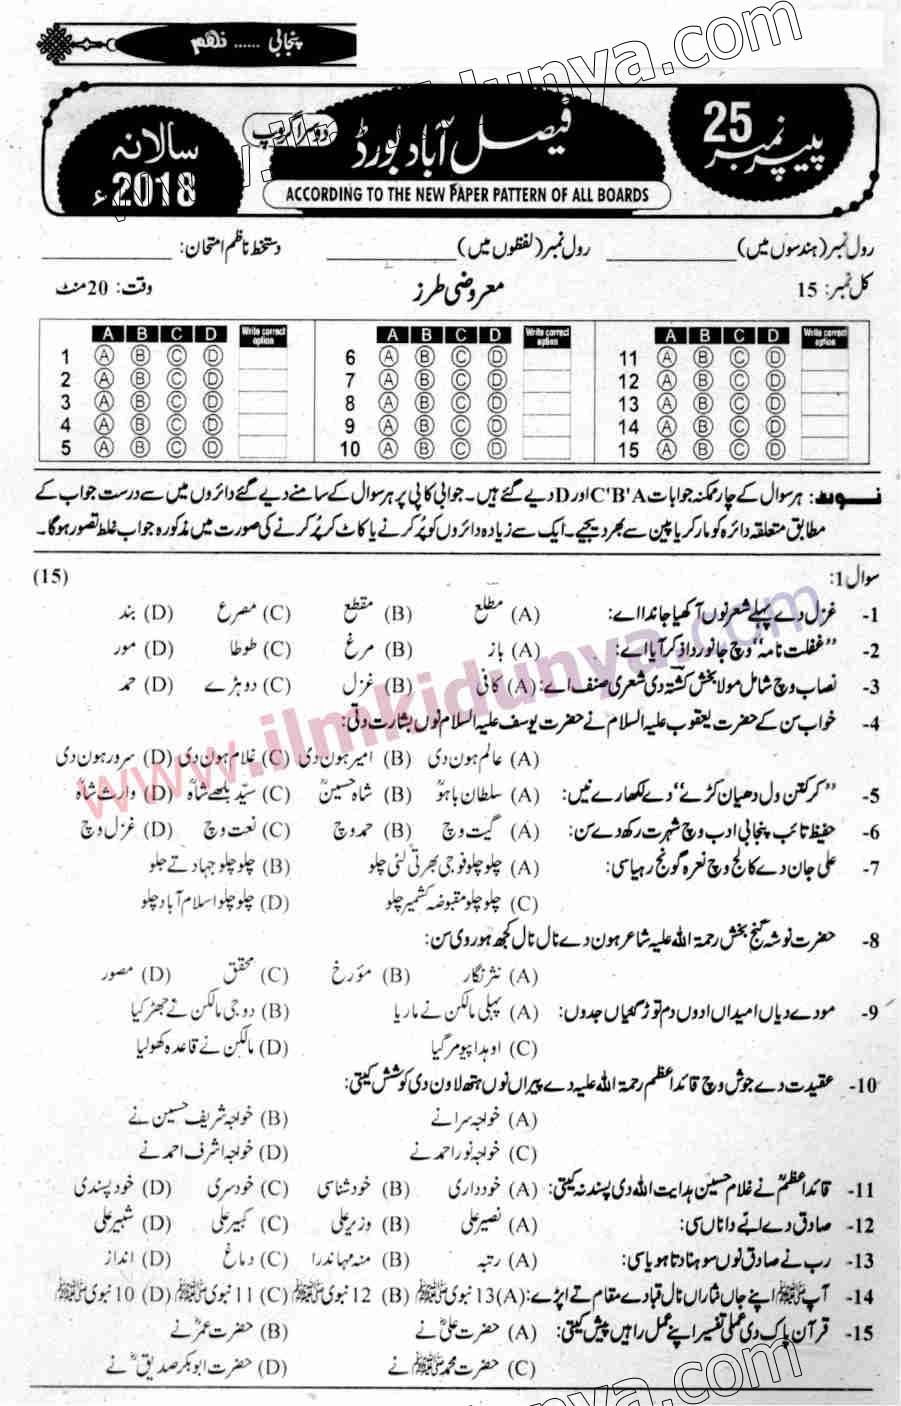 پنجابی ...... نہم
www.ilmkidunya.com
پیپر نمبر 25
فیصل آباد بورڈ
دوسرا گروپ
سالانہ
2018ء
ACCORDING TO THE NEW PAPER PATTERN OF ALL BOARDS
رول نمبر (ہندسوں میں) ____________ رول نمبر (لفظوں میں) ____________ دستخط ناظم امتحان: ____________
کل نمبر: 15 معروضی طرز وقت: 20 منٹ
A B C D Write correct option A B C D Write correct option A B C D Write correct option
1 A B C D 6 A B C D 11 A B C D
2 A B C D 7 A B C D 12 A B C D
3 A B C D 8 A B C D 13 A B C D
4 A B C D 9 A B C D 14 A B C D
5 A B C D 10 A B C D 15 A B C D
نوٹ: ہر سوال کے چار ممکنہ جوابات C'B'A اور D دیے گئے ہیں۔ جوابی کاپی پر ہر سوال کے سامنے دیے گئے دائروں میں سے درست جواب کے
مطابق متعلقہ دائرہ کو مارکر یا پین سے بھر دیجیے۔ ایک سے زیادہ دائروں کو پُر کرنے یا کاٹ کر پُر کرنے کی صورت میں مذکورہ جواب غلط تصور ہوگا۔
سوال 1: (15)
1- غزل دے پہلے شعر نوں آکھیا جاندا اے: (A) مطلع (B) مقطع (C) مصرع (D) بند
2- ”غفلت نامہ“ وچ جانور دا ذکر آیا اے: (A) باز (B) مرغ (C) طوطا (D) مور
3- نصاب وچ شامل مولا بخش کشتہ دی شعری صنف اے: (A) کافی (B) غزل (C) دوہڑے (D) حمد
4- خواب سن کے حضرت یعقوب علیہ السلام نے حضرت یوسف علیہ السلام نوں بشارت دتی:
(A) عالم ہون دی (B) امیر ہون دی (C) غلام ہون دی (D) سرور ہون دی
5- ”کر کتن ول دھیان کڑے“ دے لکھارے نیں: (A) سلطان باہوؒ (B) شاہ حسینؒ (C) سیّد بلھے شاہؒ (D) وارث شاہؒ
6- حفیظ تائب پنجابی ادب وچ شہرت رکھدے سن: (A) گیت وچ (B) حمد وچ (C) نعت وچ (D) غزل وچ
7- علی جان دے کالج وچ نعرہ گونج رہیا سی: (A) چلو چلو فوجی بھرتی لئی چلو (B) چلو چلو جہاد تے چلو
(C) چلو چلو مقبوضہ کشمیر چلو (D) چلو چلو اسلام آباد چلو
8- حضرت نوشہ گنج بخش رحمۃ اللہ علیہ شاعر ہون دے نال نال کجھ ہور وی سن:
(A) نثر نگار (B) مؤرخ (C) محقق (D) مصور
9- مودے دیاں امیداں اودوں دم توڑ گئیاں جدوں: (A) پہلی مالکن نے ماریا (B) دوجی مالکن نے جھڑکیا
(C) اوہدا پیو مر گیا (D) مالکن نے قاعدہ کھولیا
10- عقیدت دے جوش وچ قائداعظم رحمۃ اللہ علیہ دے پیراں نوں ہتھ لاون دی کوشش کیتی:
(A) خواجہ سرا نے (B) خواجہ شریف حسین نے
(C) خواجہ نور احمد نے (D) خواجہ اشرف احمد نے
11- قائداعظمؒ نے غلام حسین ہدایت اللہ دی پسند نہ کیتی: (A) خودداری (B) خود شناسی (C) خود سری (D) خود پسندی
12- صادق دے ابّے دا ناں سی: (A) نصیر علی (B) وزیر علی (C) کبیر علی (D) شبیر علی
13- رب نے صادق نوں سوہنا دتا ہویا سی: (A) رتبہ (B) منہ مہاندرا (C) دماغ (D) انداز
14- آپ ﷺ اپنے جاں نثاراں نال قبا دے مقام تے اپڑے: (A) 13 نبوی ﷺ (B) 12 نبوی ﷺ (C) 11 نبوی ﷺ (D) 10 نبوی ﷺ
15- قرآن پاک دی عملی تفسیر اپنے عمل راہیں پیش کیتی: (A) حضرت علیؓ نے (B) حضرت عمرؓ نے
(C) حضرت محمد ﷺ نے (D) حضرت ابوبکر صدیقؓ نے